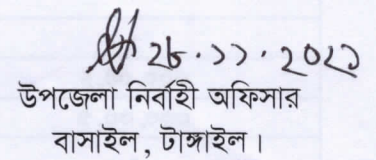 ২৮.১১.২০২১
উপজেলা নির্বাহী অফিসার
বাসাইল, টাঙ্গাইল।